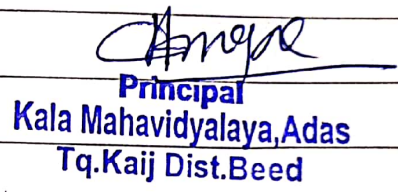 Principal
Kala Mahavidyalaya,Adas
Tq.Kaij Dist.Beed